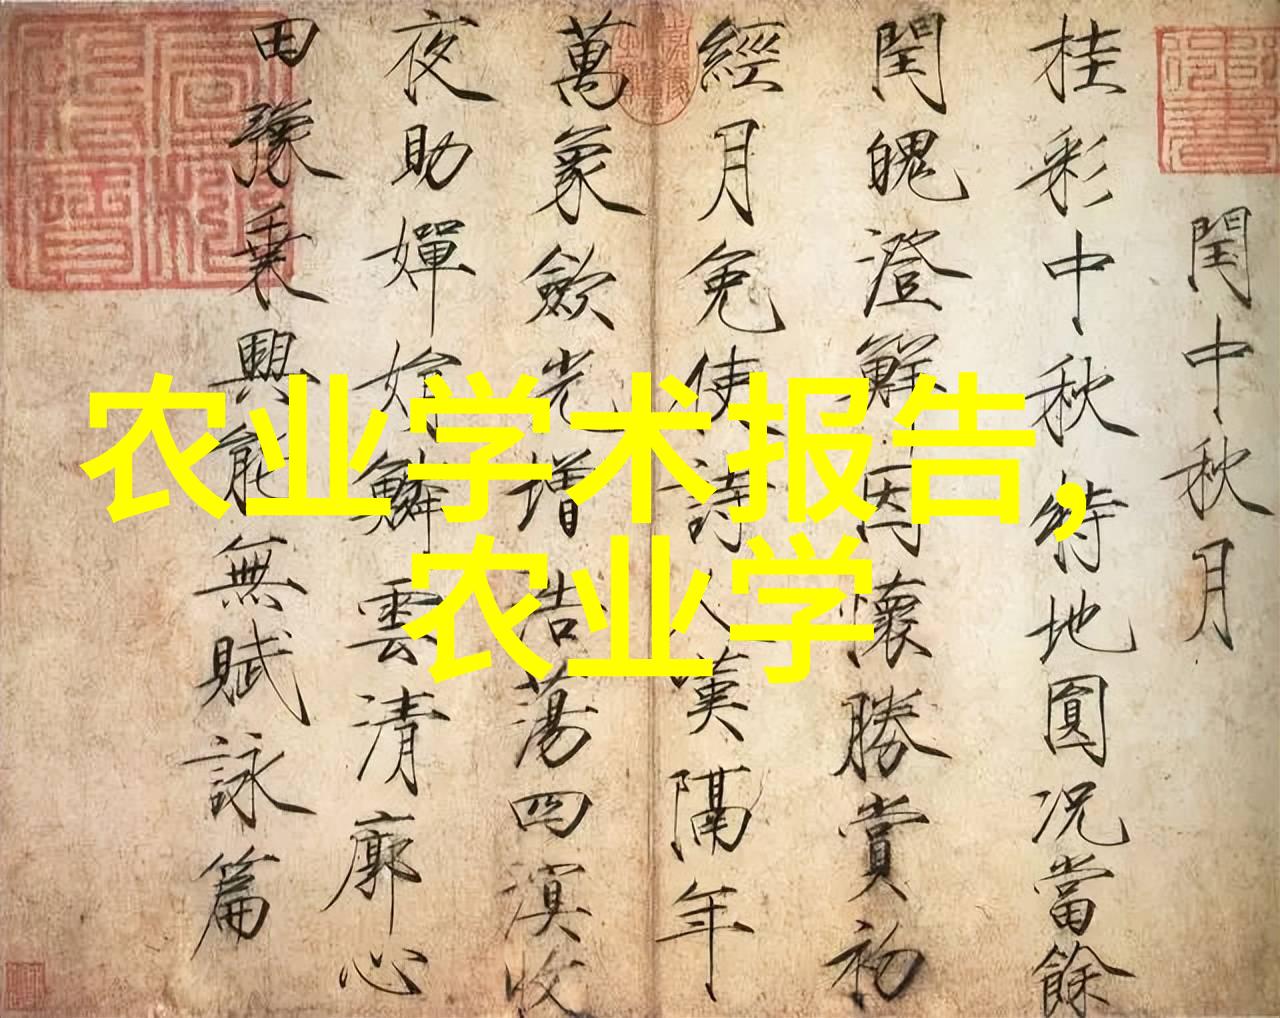 閏中秋月
桂彩中秋特地圓況當餘
閏魄澄鮮因懷勝賞初
經月免使詩人嘆隔年
萬象歛光增浩蕩四溟收
夜助嬋娟鱗雲清廓心
田豫乗興能無賦詠篇
农业学术报告,
农业学